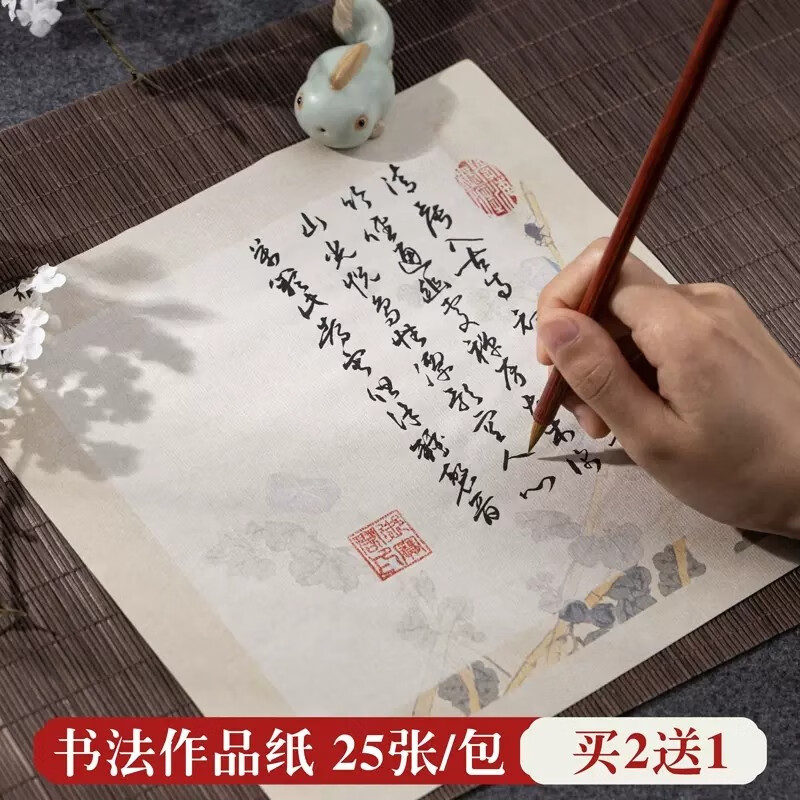 清晨入古寺初
竹径通幽处禅房花木深
山光悦鸟性潭影空人心
万籁此都寂但余钟磬音
书法作品纸 25张/包
买2送1